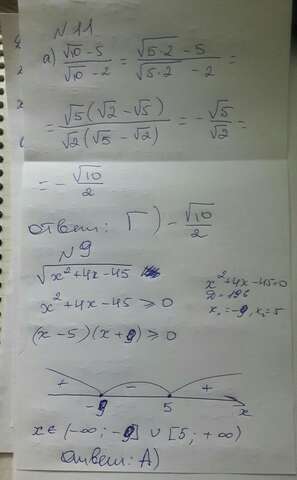 №11
а) (√10 - 5)/(√10 - 2) = (√(5·2) - 5)/(√(5·2) - 2) =
= √5(√2 - √5)/√2(√5 - √2) = - √5/√2 =
= - √10/2
ответ: Г) - √10/2
№9
√(x² + 4x - 45)
x² + 4x - 45 ≥ 0
(x - 5)(x + 9) ≥ 0
x² + 4x - 45 = 0
D = 196
x₁ = -9, x₂ = 5
+ - +
-9 5 x
x ∈ (-∞; -9] ∪ [5; +∞)
Ответ: А)